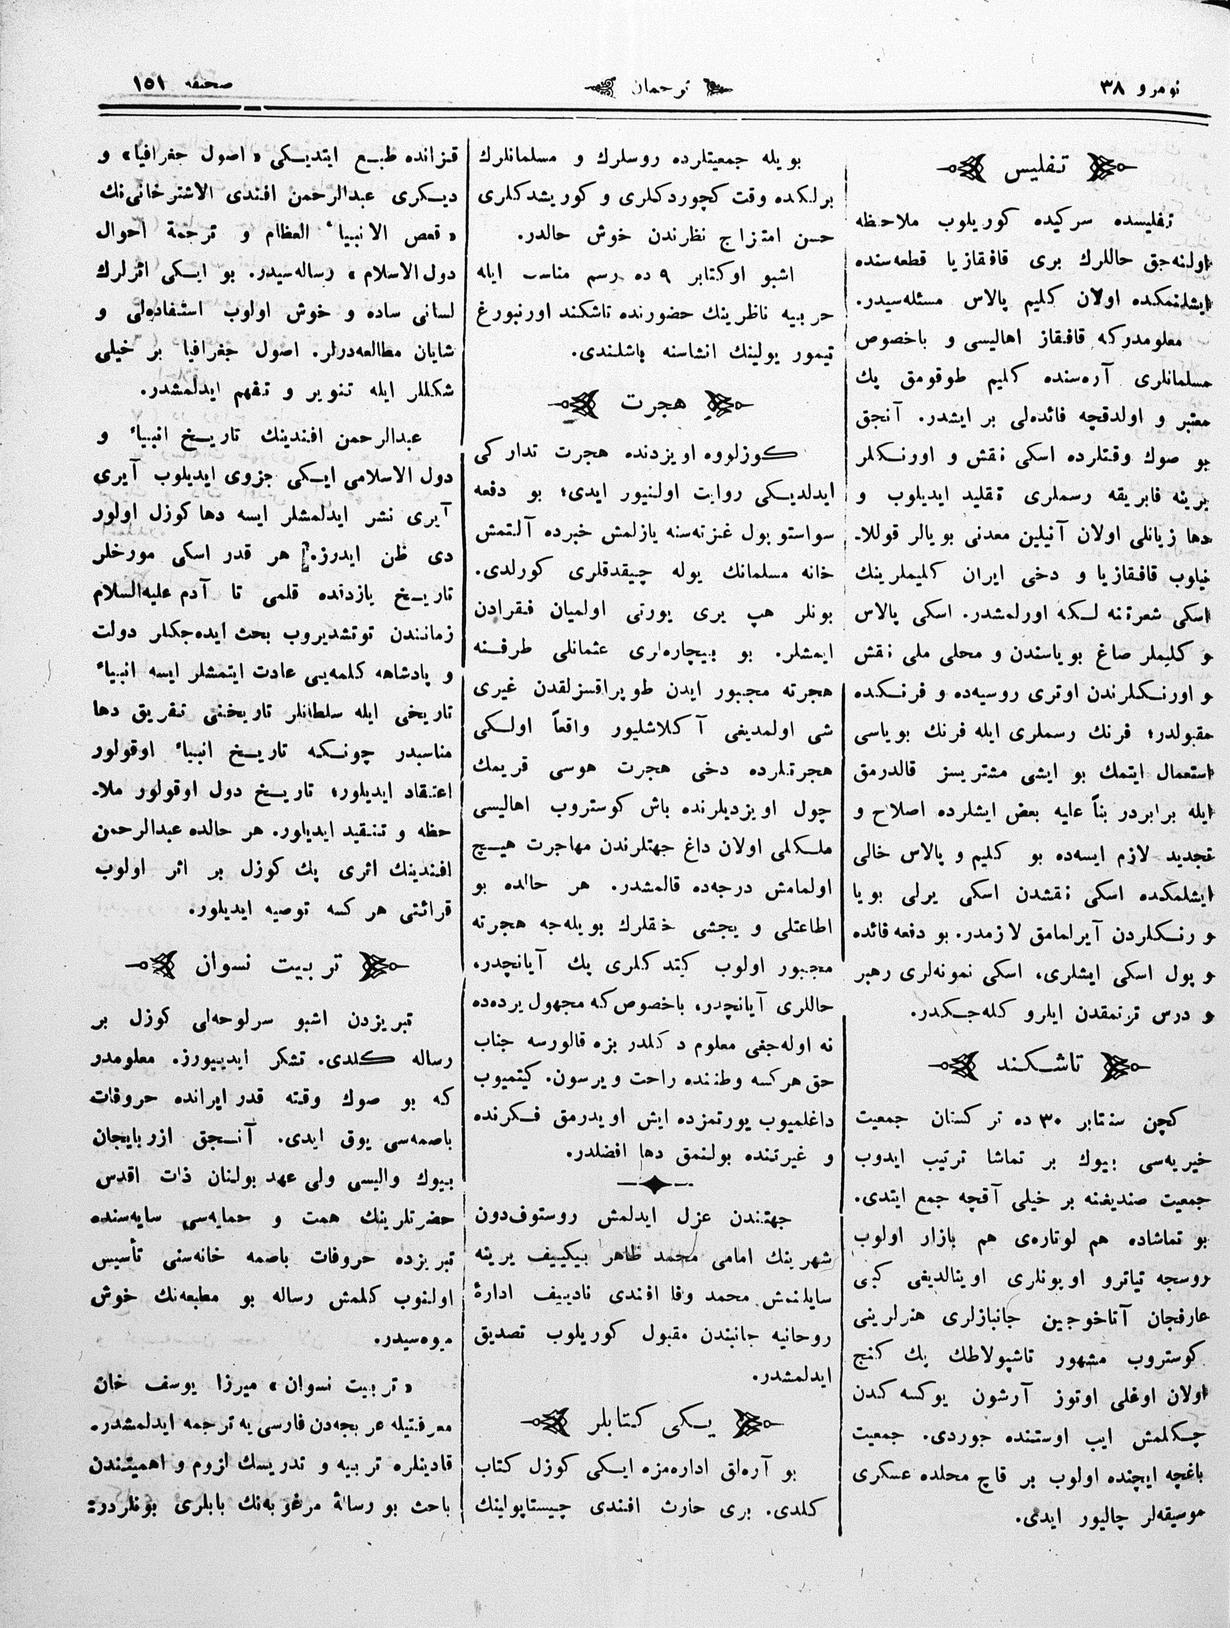 نومرو ٣٨
ترجمان
صحیفه ١٥١
تفلیس
تفلیسده سرکیده کوریلوب ملاحظه
اولنه‌جق حاللرك بری قافقازیا قطعه‌سنده
ایشلنمکده اولان کلیم پالاس مسئله‌سیدر.
معلومدرکه قافقاز اهالیسی و باخصوص
مسلمانلری آره‌سنده کلیم طوقومق پك
معتبر و اولدقچه فائده‌لی بر ایشدر. آنجق
بو صوك وقتلرده اسکی نقش و اورنکلر
یرینه فابریقه رسملری تقلید ایدیلوب و
دها زیانلی اولان آنیلین معدنی بویالر قوللا-
نیلوب قافقازیا و دخی ایران کلیملرینك
اسکی شهرتنه لکه اورلمشدر. اسکی پالاس
و کلیملر صاغ بویاسندن و محلی ملی نقش
و اورنکلرندن اوتری روسیه‌ده و فرنکده
مقبولدر؛ فرنك رسملری ایله فرنك بویاسی
استعمال ایتمك بو ایشی مشتریسز قالدرمق
ایله برابردر بناً علیه بعض ایشلرده اصلاح و
تجدید لازم ایسه‌ده بو کلیم و پالاس خالی
ایشلمکده اسکی نقشدن اسکی یرلی بویا
و رنکلردن آیرلمامق لازمدر. بو دفعه فائده
و پول اسکی ایشلری، اسکی نمونه‌لری رهبر
و درس ترتمقدن ایلرو کله‌جکدر.
تاشکند
کچن سنتابر ٣٠ ده ترکستان جمعیت
خیریه‌سی بیوك بر تماشا ترتیب ایدوب
جمعیت صندیغنه بر خیلی آقچه جمع ایتدی.
بو تماشاده هم لوتاره‌ی هم بازار اولوب
روسجه تیاترو اویونلری اوینالدیغی کبی
عارفجان آتاخوجین جانبازلری هنرلرینی
کوستروب مشهور تاشپولاطك پك کنج
اولان اوغلی اوتوز آرشون یوکسه‌کدن
چکلمش ایب اوستنده جوردی. جمعیت
باغچه ایچنده اولوب بر قاچ محلده عسکری
موسیقه‌لر چالیور ایدی.
بویله جمعیتلرده روسلرك و مسلمانلرك
برلکده وقت کچوردکلری و کوریشدکلری
حسن امتزاج نظرندن خوش حالدر.
اشبو اوکتابر ٩ ده رسم مناسب ایله
حربیه ناظرینك حضورنده تاشکند اورنبورغ
تیمور یولینك انشاسنه باشلندی.
هجرت
کوزلووه اویزدنده هجرت تدارکی
ایدلدیکی روایت اولنیور ایدی؛ بو دفعه
سواستوپول غزته‌سنه یازلمش خبرده آلتمش
خانه مسلمانك یوله چیقدقلری کورلدی.
بونلر هپ یری یورتی اولمیان فقرادن
ایمشلر. بو بیچاره‌لری عثمانلی طرفنه
هجرته مجبور ایدن طوپراقسزلقدن غیری
شی اولمدیغی آکلاشلیور واقعاً اولکی
هجرتلرده دخی هجرت هوسی قریمك
چول اویزدیلرنده باش کوستروب اهالیسی
ملکلی اولان داغ جهتلرندن مهاجرت هیچ
اولمامش درجه‌ده قالمشدر. هر حالده بو
اطاعتلی و یخشی خلقلرك بویله‌جه هجرته
مجبور اولوب کتدکلری پك آیانچدر.
حاللری آیانچدر، باخصوص که مجهول یرده‌ده
نه اوله‌جغی معلوم دکلدر بزه قالورسه جناب
حق هرکسه وطننده راحت ویرسون. کیتمیوب
داغلمیوب یورتمزده ایش اویدرمق فکرنده
و غیرتنده بولنمق دها افضلدر.
جهتندن عزل ایدلمش روستوف‌دون
شهرینك امامی محمد ظاهر بیکییف یرینه
سایلنمش محمد وفا افندی نادییف ادارهٔ
روحانیه جانبندن مقبول کوریلوب تصدیق
ایدلمشدر.
یکی کتابلر
بو آره‌لق اداره‌مزه ایکی کوزل کتاب
کلدی. بری حارث افندی چیستاپولینك
قزانده طبع ایتدیکی «اصول جغرافیا» و
دیکری عبدالرحمن افندی الاشترخانی‌نك
«قصص الانبیاء العظام و ترجمهٔ احوال
دول‌الاسلام» رساله‌سیدر. بو ایکی اثرلرك
لسانی ساده و خوش اولوب استفاده‌لی و
شایان مطالعه‌درلر. اصول جغرافیا بر خیلی
شکللر ایله تنویر و تفهیم ایدلمشدر.
عبدالرحمن افندینك تاریخ انبیاء و
دول الاسلامی ایکی جزوی ایدیلوب آیری
آیری نشر ایدلمشلر ایسه دها کوزل اولور
دی ظن ایدرز. هر قدر اسکی مورخلر
تاریخ یازدنده قلمی تا آدم علیه‌السلام
زمانندن توتشدیروب بحث ایده‌جکلر دولت
و پادشاهه کلمه‌یی عادت ایتمشلر ایسه انبیاء
تاریخی ایله سلطانلر تاریخنی تفریق دها
مناسبدر چونکه تاریخ انبیاء اوقولور
اعتقاد ایدیلور؛ تاریخ دول اوقولور ملا-
حظه و تنقید ایدیلور. هر حالده عبدالرحمن
افندینك اثری پك کوزل بر اثر اولوب
قرائتی هرکسه توصیه ایدیلور.
تربیت نسوان
تبریزدن اشبو سرلوحه‌لی کوزل بر
رساله کلدی. تشکر ایدییورز. معلومدر
که بو صوك وقته قدر ایرانده حروفات
باصمه‌سی یوق ایدی. آنجق ازربایجان
بیوك والیسی ولی عهد بولنان ذات اقدس
حضرتلرینك همت و حمایه‌سی سایه‌سنده
تبریزده حروفات باصمه خانه‌سنی تأسیس
اولنوب کلمش رساله بو مطبعه‌نك خوش
میوه‌سیدر.
«تربیت نسوان» میرزا یوسف خان
معرفتیله عربجه‌دن فارسی‌یه ترجمه ایدلمشدر.
قادینلره تربیه و تدریسك لزوم و اهمیتندن
باحث بو رسالهٔ مرغوبه‌نك بابلری بونلردر: